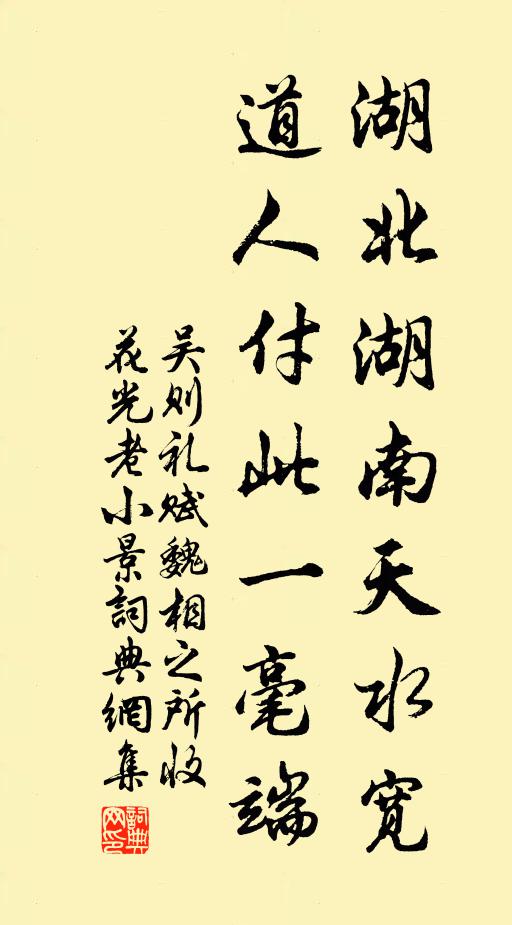 湖北湖南天水寬
道人付此一毫端
吴则礼赋魏相之所收
花光老小景詞典網集
詞典網印